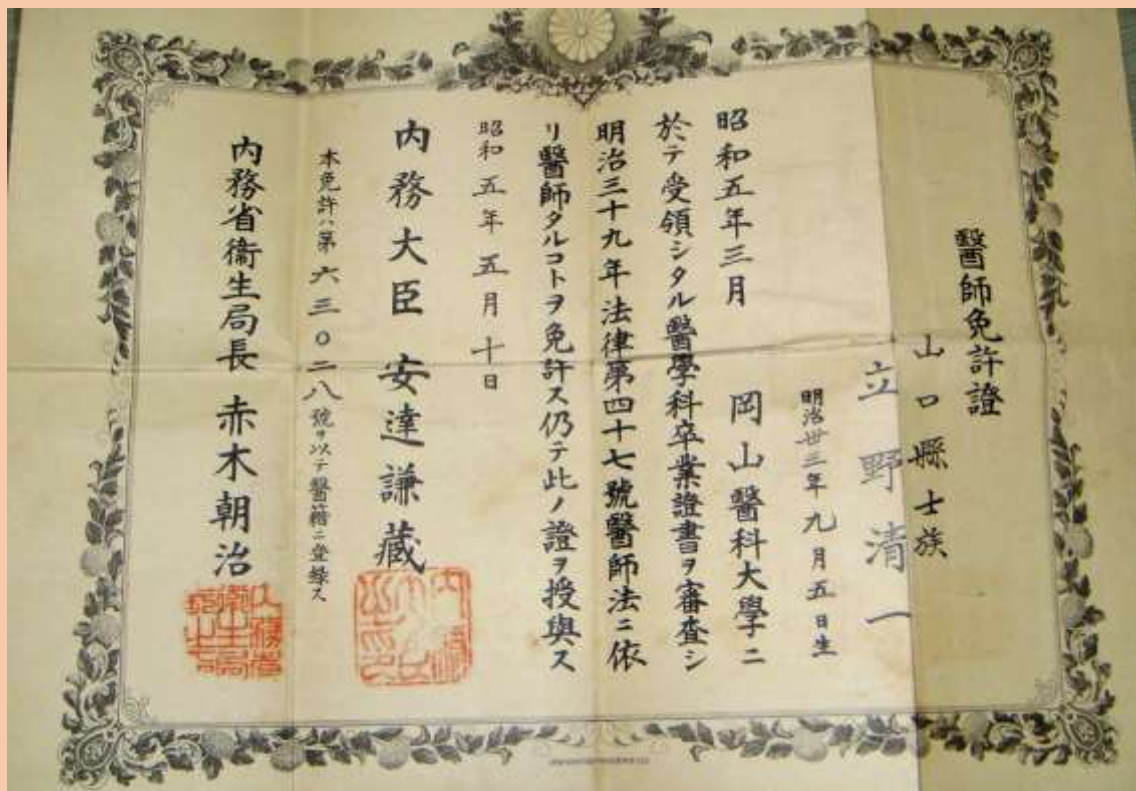 醫師免許證
山口縣士族
立野清一
明治卅三年九月五日生
昭和五年三月 岡山醫科大學ニ
於テ受領シタル醫學科卒業證書ヲ審査シ
明治三十九年法律第四十七號醫師法ニ依
リ醫師タルコトヲ免許ス仍テ此ノ證ヲ授與ス
昭和五年五月十日
内務大臣 安達謙藏
本免許ハ第六三〇二八號ヲ以テ醫籍ニ登録ス
内務省衞生局長 赤木朝治